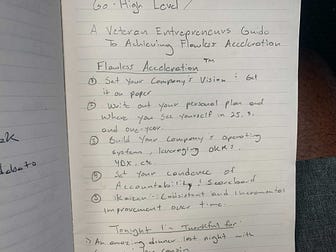 Go-High Level /
A Veteran Entrepreneurs Guide
To Achieving Flawless Acceleration
Flawless Acceleration™
① Set Your Company's Vision: Get
it on paper
② Write out your personal plan and
where you see yourself in 25, 3,
and one-year.
③ Build Your Company's operating
system, leveraging OKRs,
4DX, etc
Set your candence of
Accountability / Scoreboard
Kaizen - Consistent and Incremental
improvement over time.
Tonight I'm Thankful for:
> An amazing dinner last night with
cousin